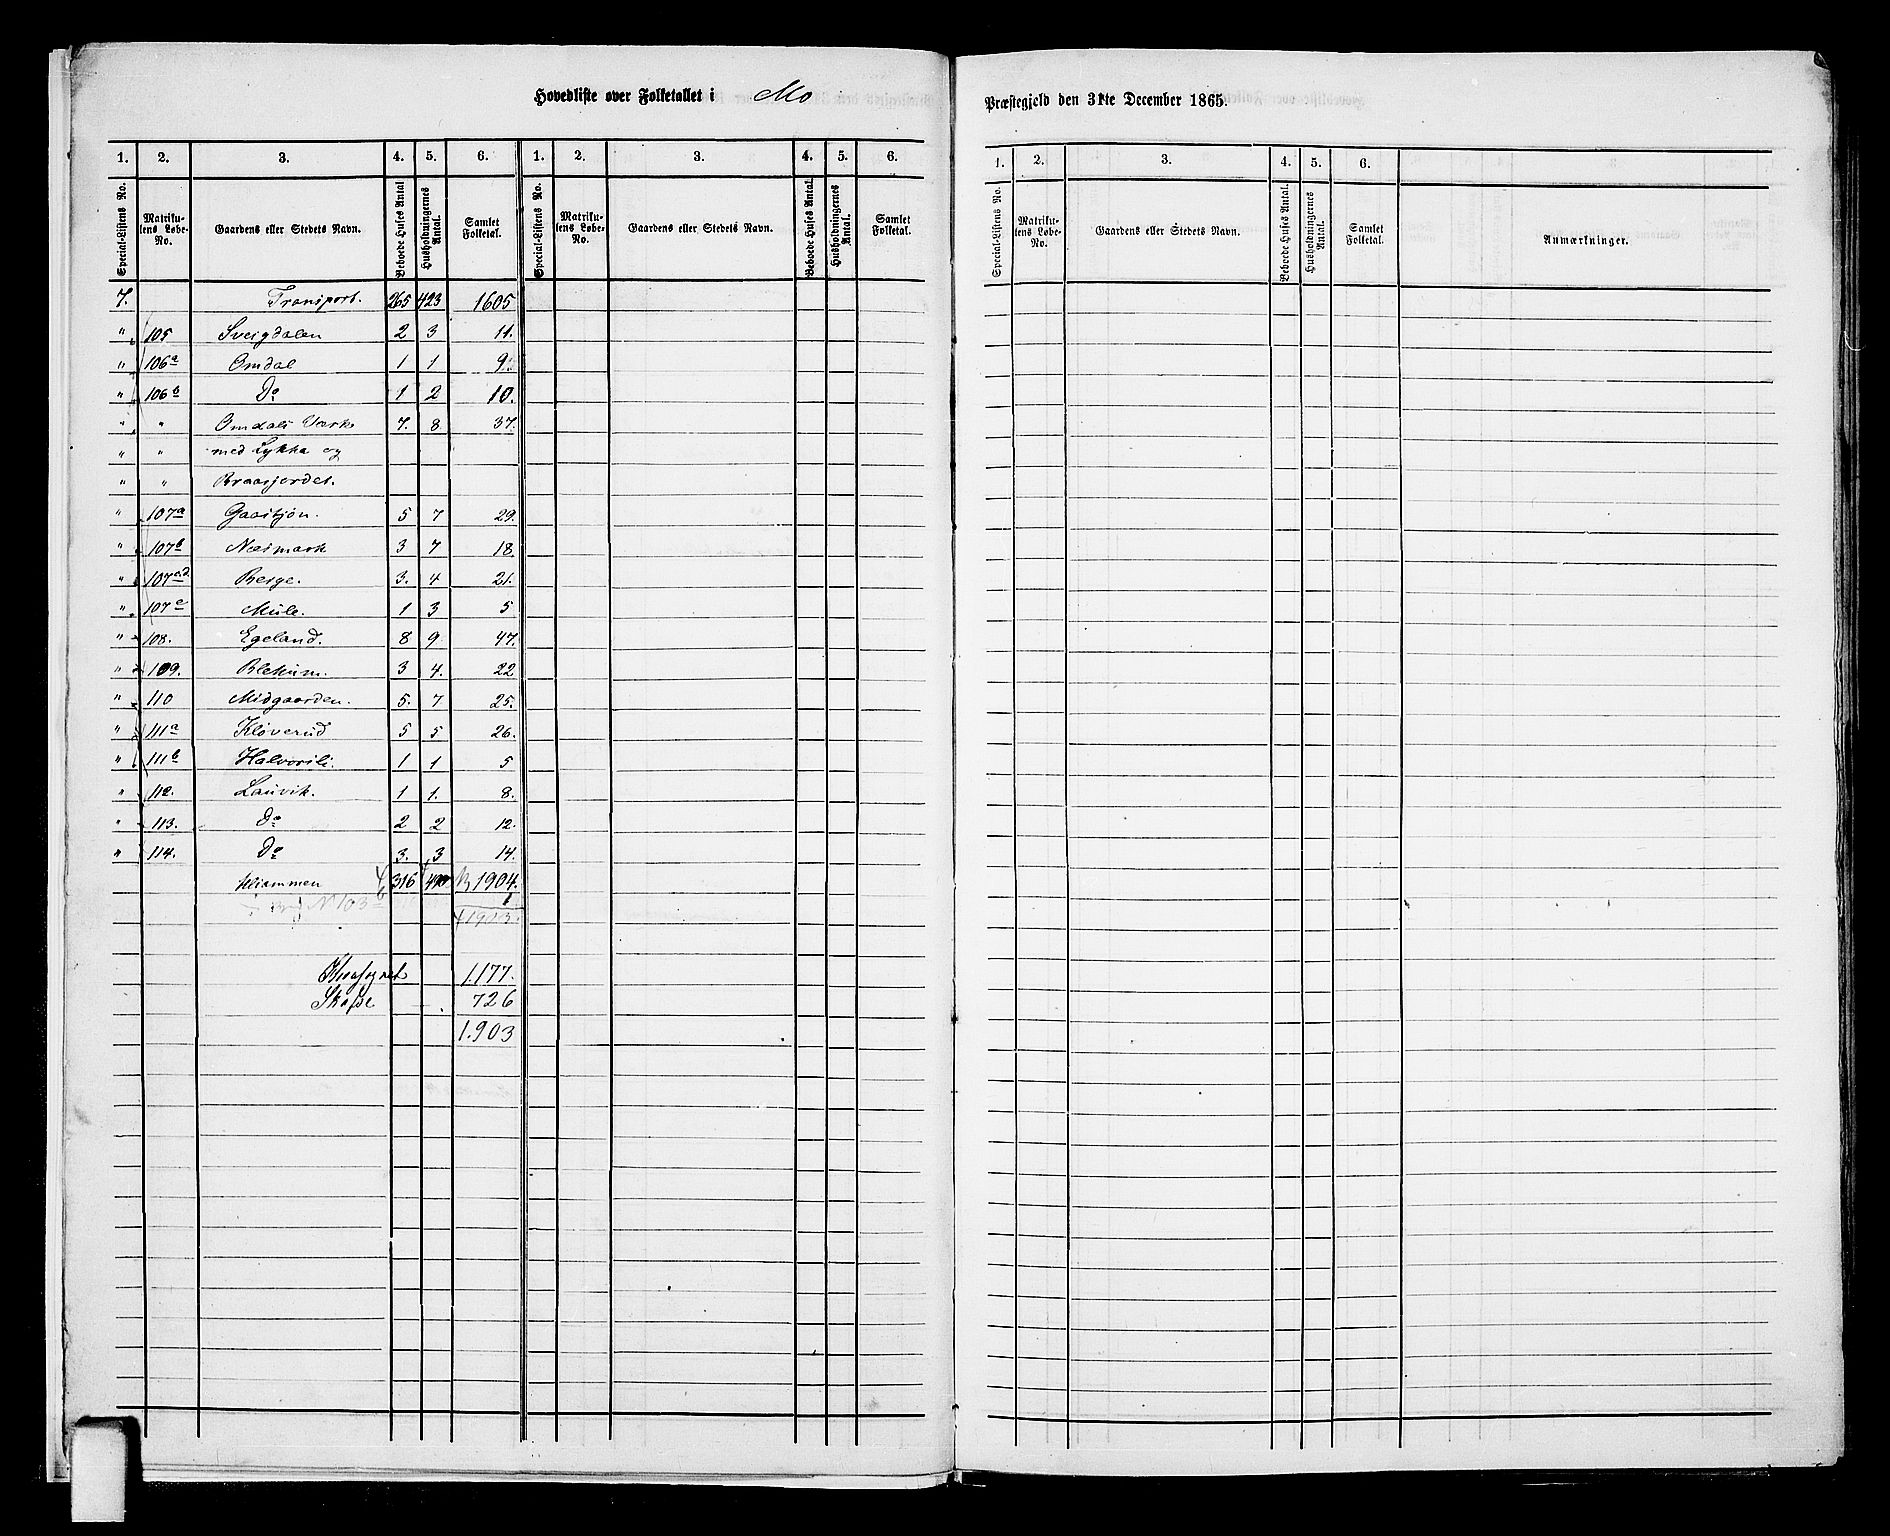 Hovedliste over Folketallet i Mo Præstegjeld den 31te December 1865.
1. 2. 3. 4. 5. 6. 1. 2. 3. 4. 5. 6.
Special-Listens No. Matrikulens Løbe-No. Gaardens eller Stedets Navn. Beboede Huses Antal Husholdningernes Antal. Samlet Folketal. Special-Listens No. Matrikulens Løbe-No. Gaardens eller Stedets Navn. Beboede Huses Antal. Husholdningernes Antal. Samlet Folketal.
7. Transport. 265 423 1605
" 105 Sveigdalen 2 3 11.
" 106a Omdal 1 1 9.
" 106b Do 1 2 10.
" " Omdals Værk 7. 8 37.
" " med Lykka og
" " Braasjordet.
" 107a Gaastjøn. 5 7 29.
" 107b Næsmark 3 7 18.
" 107c.d. Berge. 3. 4 21.
" 107e Mule. 1 3 5
" 108. Egeland. 8 9. 47.
" 109. Blekum. 3 4. 22
" 110 Midgaarden. 5. 7 25.
" 111a Kløverud 5 5 26.
" 111b Halvorsli. 1 1 5
" 112. Lauvik. 1 1. 8.
" 113. Do 2 2 12.
" 114. Do 3. 3 14.
316 490 1904.
No 103b 1
1903.
1.177.
Skafse 726
1.903
1. 2. 3. 4. 5. 6.
Special-Listens No. Matrikulens Løbe-No. Gaardens eller Stedets Navn. Beboede Huses Antal. Husholdningernes Antal. Samlet Folketal. Anmærkninger.